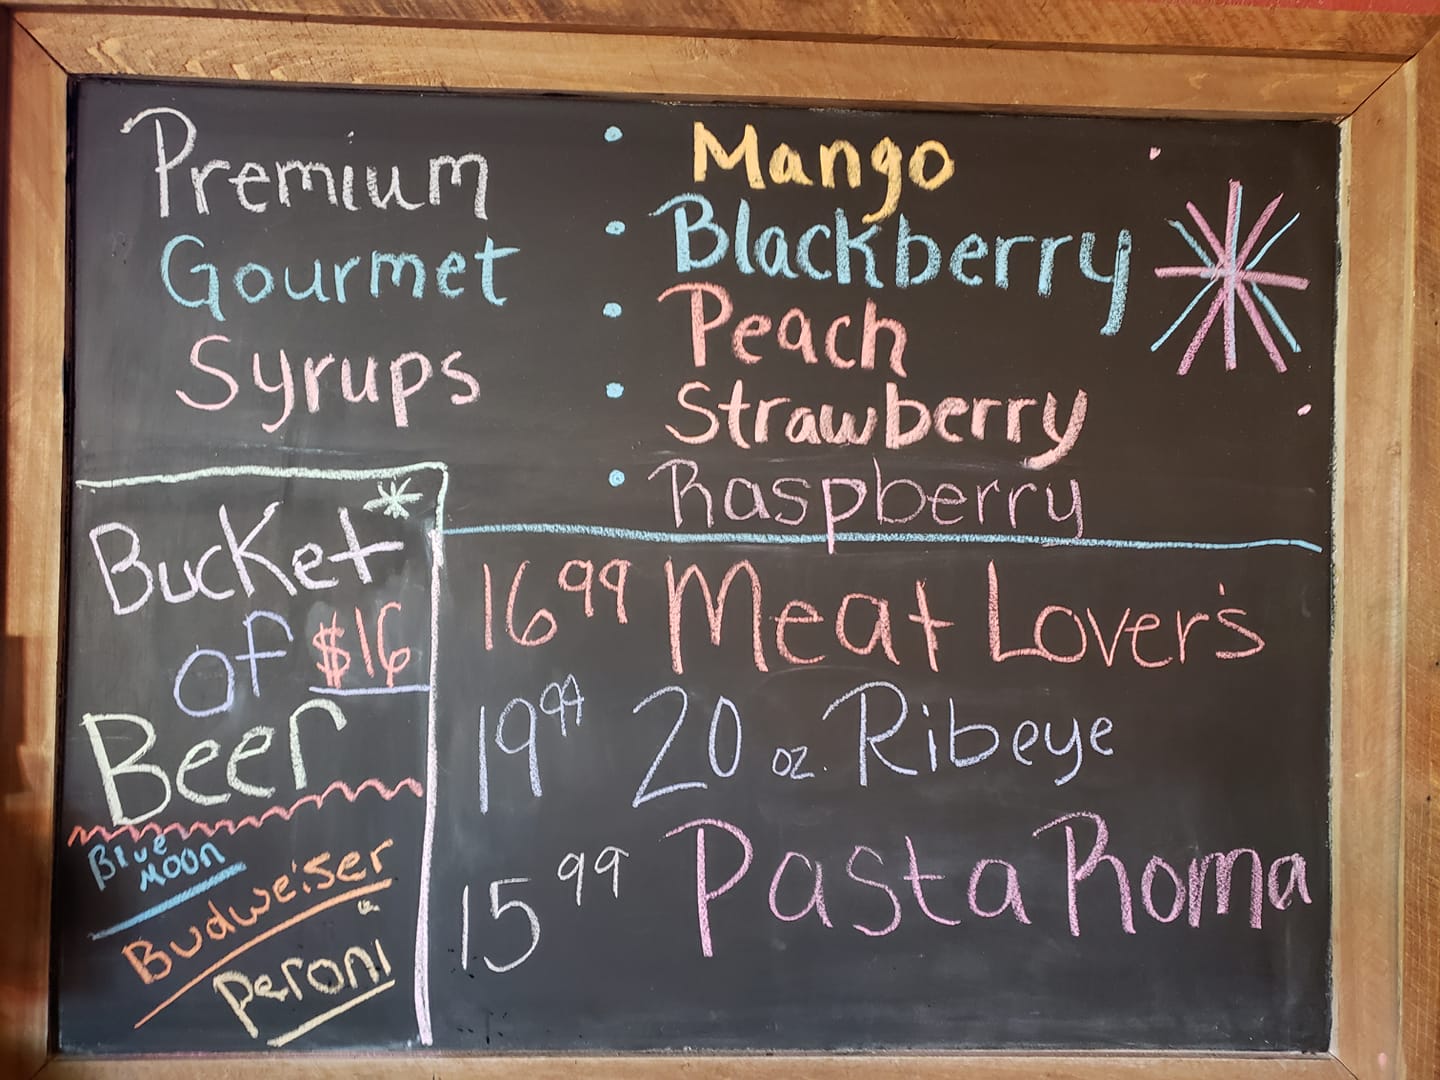 Premium
Gourmet
Syrups
• Mango
• Blackberry
• Peach
• Strawberry
• Raspberry
Bucket*
of $16
Beer
Blue
Moon
Budweiser
Peroni
16 99 Meat Lover's
19 99 20 oz. Ribeye
15 99 Pasta Roma